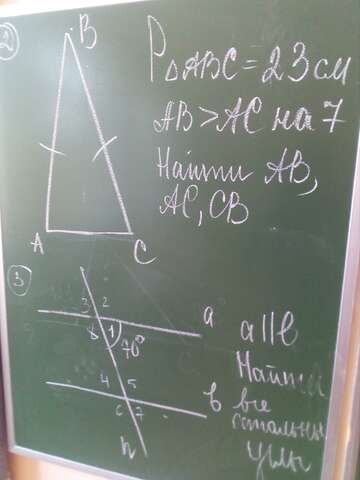 2
B
P△ABC = 23 см
AB > AC на 7
Найти AB,
AC, CB
A
C
3
3 2
a
a||b
8 1
70°
Найти
4 5
b
все
6 7
остальны
n
углы